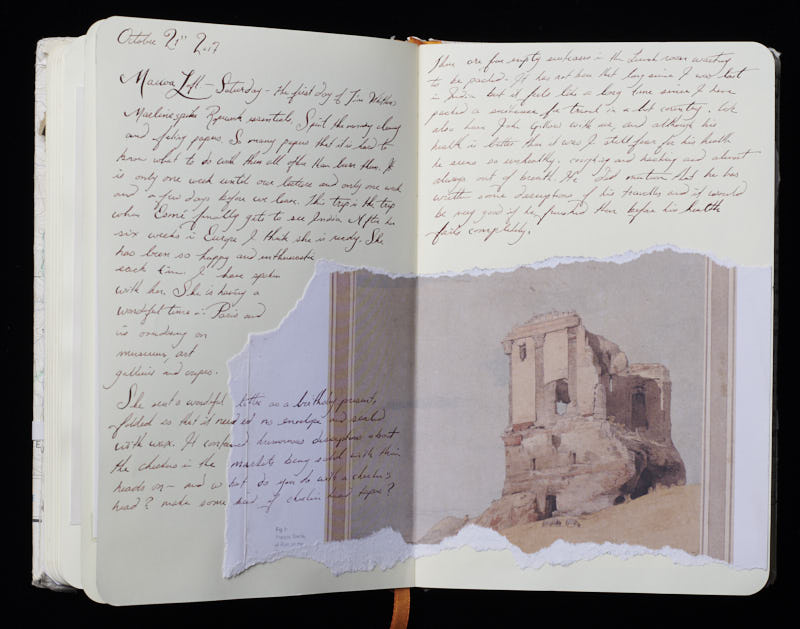 October 21st 2017
Loft – Saturday – the first day of Jim
essentials. Spent the morning
and filing papers. So many papers that it is hard to
know what to do with them all other than burn them. It
is only one week until our lecture and only one week
and a few days before we leave. This trip is the trip
when Esmé finally gets to see India. After her
six weeks in Europe I think she is ready. She
has been so happy and enthusiastic
each time I have spoken
with her. She is having a
wonderful time in Paris and
is on
museums, art
galleries and
She sent a wonderful letter as a birthday present,
folded so that it needed no envelope and sealed
with wax. It contained humorous descriptions about
the chickens in the markets being sold with their
heads on – and what do you do with a chicken's
head? make some kind of chicken head
Fig.
Francis
There are five empty suitcases in the room waiting
to be packed. It has not been that long since I was last
in India but it feels like a long time since I have
packed a suitcase for travel in a hot country. We
also have John with us, and although his
health is better than it was I still fear for his health
he seems so unhealthy, coughing and hacking and almost
always out of breath. He did mention that he has
written some descriptions of his travels and it would
be very good if he finished them before his health
fails completely.